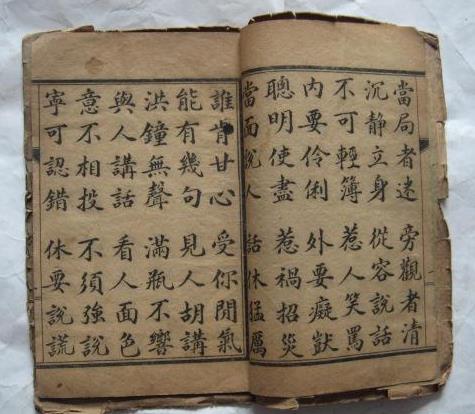 當局者迷 旁觀者清
沉静立身 從容說話
不可輕簿 惹人笑罵
内要伶俐 外要癡獃
聰明使盡 惹禍招災
當面說人 話休猛厲
誰肯甘心 受你閒氣
能有幾句 見人胡講
洪鐘無聲 滿瓶不響
與人講話 看人面色
意不相投 不須強說
寧可認錯 休要說謊